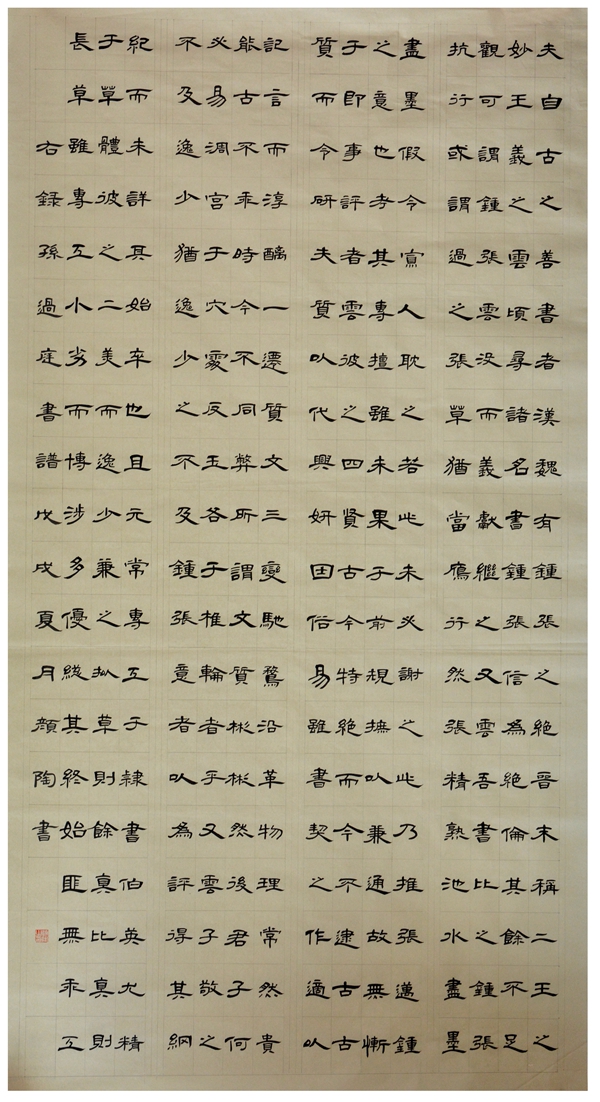 夫自古之善書者漢魏有鍾張之絕晉末稱二王之
妙王羲之雲頃尋諸名書鍾張信為絕倫其餘不足
觀可謂鍾張雲沒而羲獻繼之又雲吾書比之鍾張
抗行或謂過之張草猶當鴈行然張精熟池水盡墨
盡墨假令寡人耽之若此未必謝之此乃推張邁鍾
之意也考其專擅雖未果于前規摭以兼通故無慚
于即事評者雲彼之四賢古今特絕而今不逮古古
質而今研夫質以代興妍因俗易雖書契之作適以
記言而淳醨一遷質文三變馳騖沿革物理常然貴
能古不乖時今不同弊所謂文質彬彬然後君子何
必易凋宮于穴處反玉各于椎輪者乎又雲子敬之
不及逸少猶逸少之不及鍾張意者以為評得其綱
紀而未詳其始卒也且元常專工于隸書伯英尤精
于草體彼之二美而逸少兼之拟草則餘真比真則
長草雖專工小劣而博涉多優總其終始匪無乖互
右錄孫過庭書譜戊戌夏月顏陶書